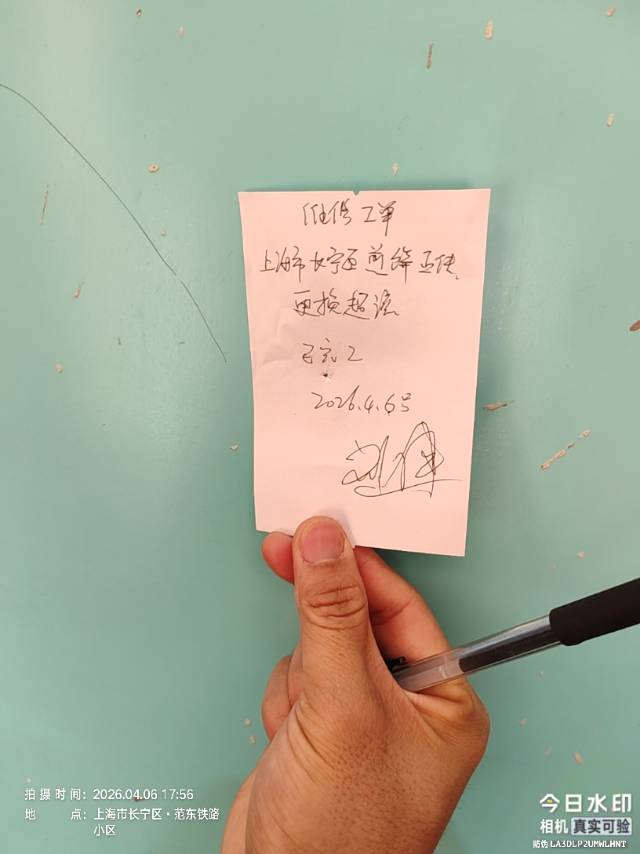 维修工单
上海市长宁区
更换
已完工
2026.4.6号
拍摄时间: 2026.04.06 17:56
地 点: 上海市长宁区·范东铁路
小区
今日水印
相机 真实可验
防伪 LA3DLP2UMWLHNT